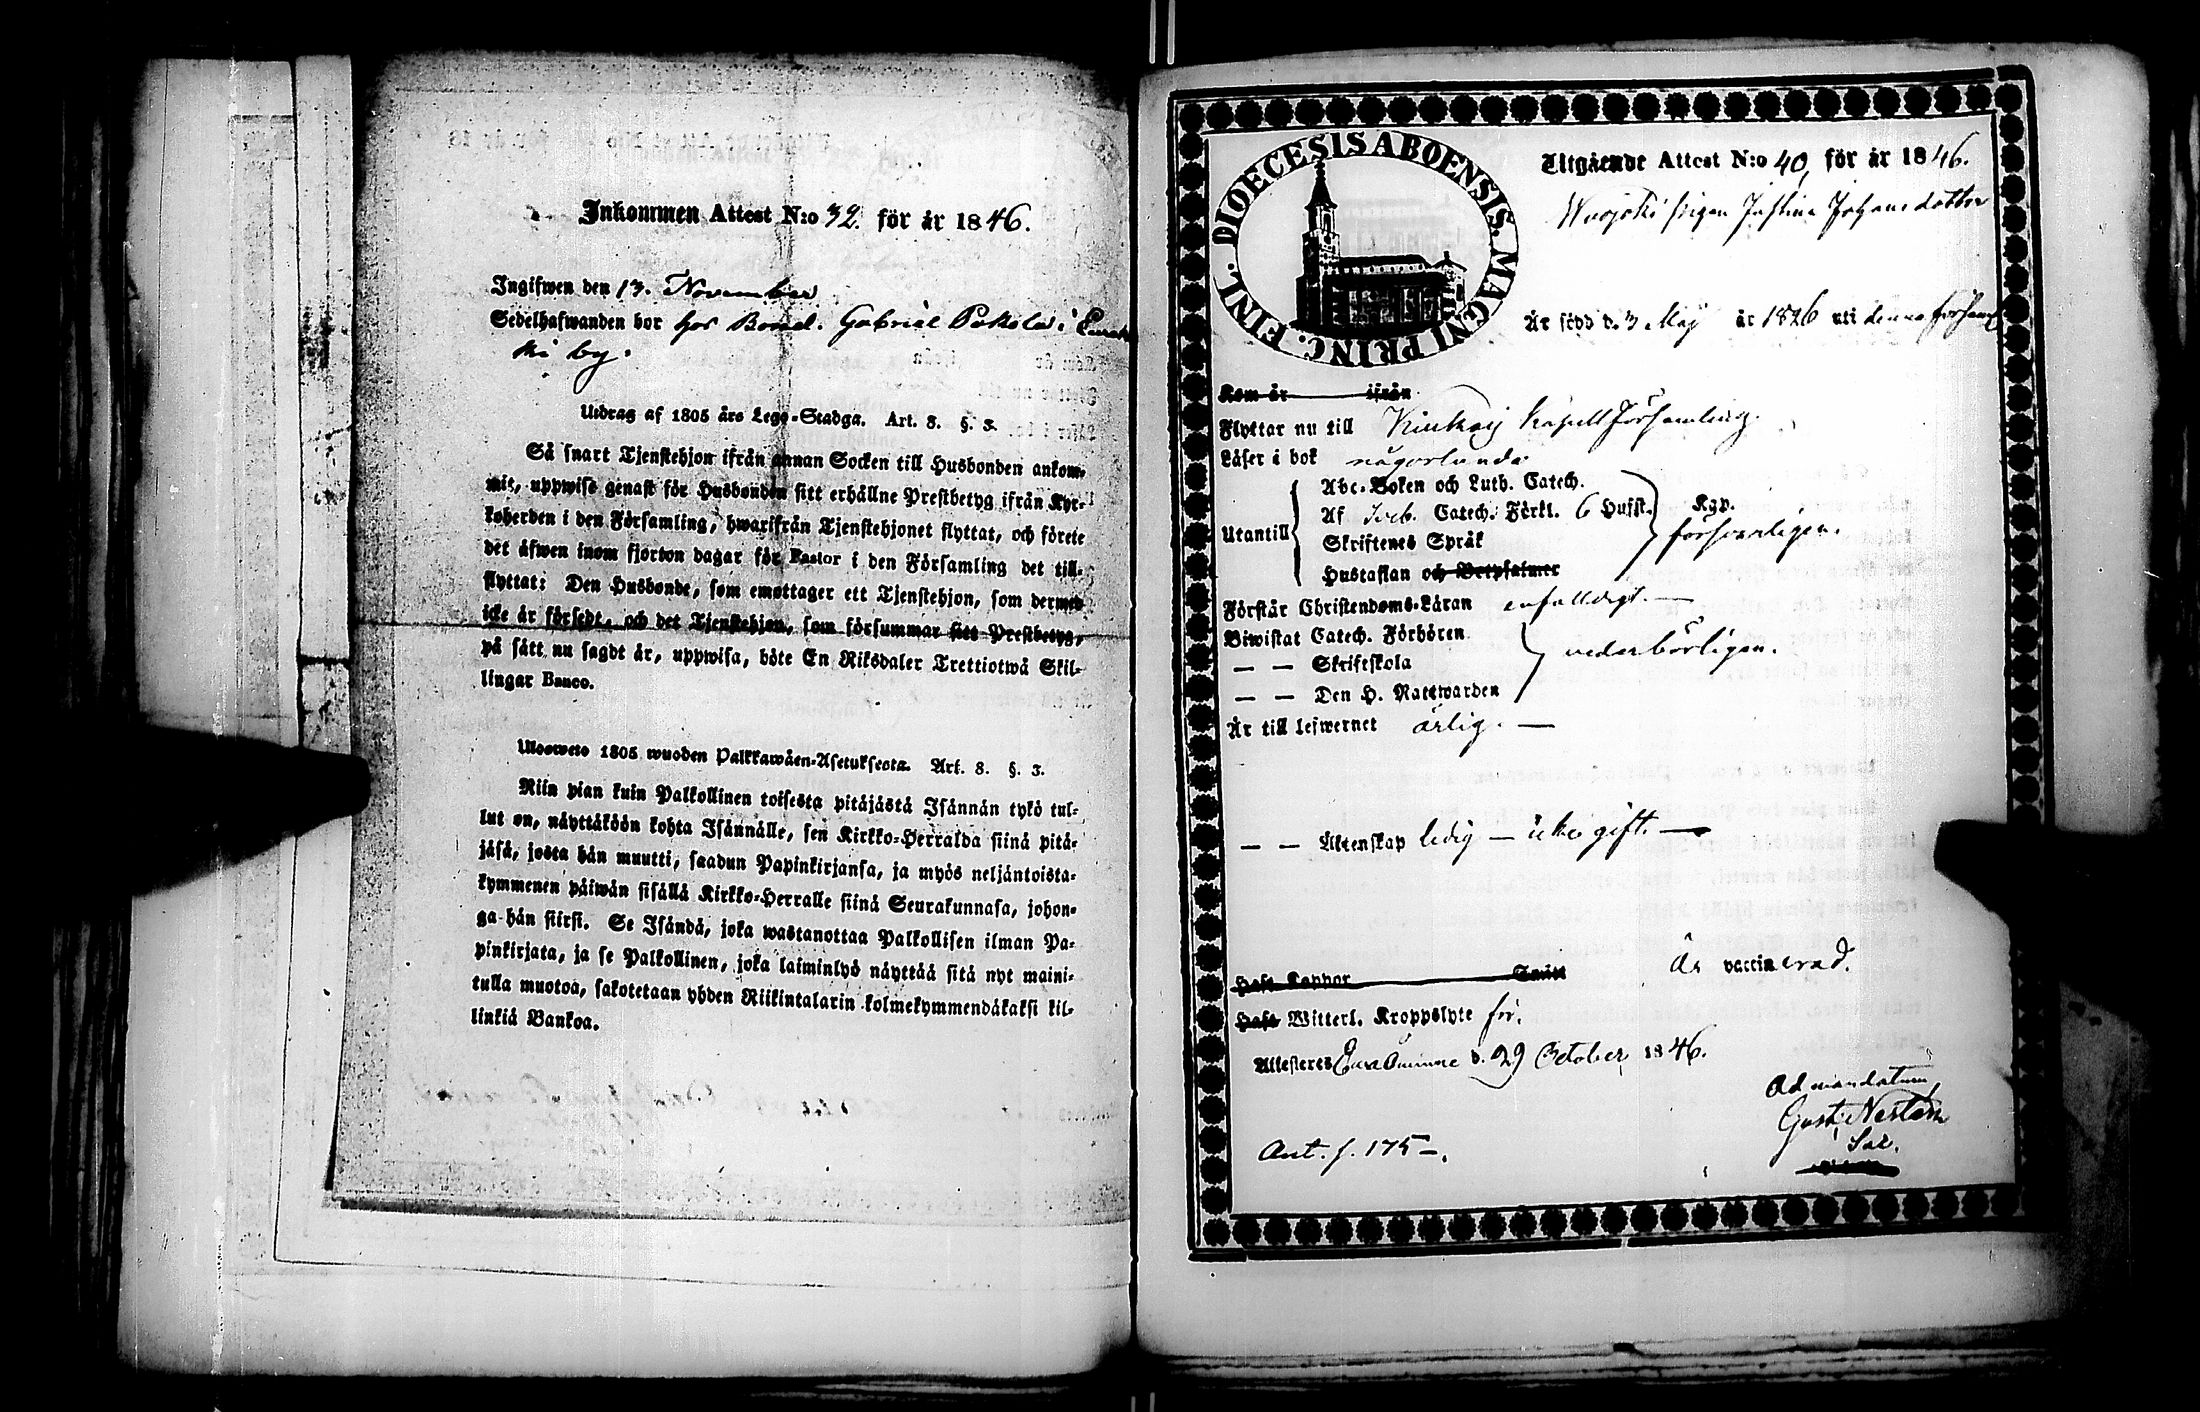 Inkommen Attest N:o 32. för år 1846.
Ingifwen den 13. November
Sedelhafwanden bor hos Bond. Gabriel Pakola i
ki by.
Utdrag af 1805 års Lego-Stadga. Art. 8. §. 3.
Så snart Tjenstehjon ifrån annan Socken till Husbonden ankom-
mit, uppwise genast för Husbonden sitt erhållne Prestbetyg ifrån Kyr-
koherden i den Församling, hwarifrån Tjenstehjonet flyttat, och förete
det äfwen inom fjorton dagar för Pastor i den Församling det till-
flyttat: Den Husbonde, som emottager ett Tjenstehjon, som dermed
icke är försedt, och det Tjenstehjon, som försummar sitt Prestbetyg,
på sätt nu sagdt är, uppwisa, böte En Riksdaler Trettiotwå Skil-
lingar Banco.
Ulosweto 1805 wuoden Palkkawäen-Asetuksesta. Art. 8. §. 3.
Niin pian kuin Palkollinen toisesta pitäjästä Isännän tykö tul-
lut on, näyttäköön kohta Isännälle, sen Kirkko-Herralda siinä pitä-
jäsä, josta hän muutti, saadun Papinkirjansa, ja myös neljäntoista-
kymmenen päiwän sisällä Kirkko-Herralle siinä Seurakunnasa, johon-
ga hän siirsi. Se Isändä, joka wastanottaa Palkollisen ilman Pa-
pinkirjata, ja se Palkollinen, joka laiminlyö näyttää sitä nyt maini-
tulla muotoa, sakotetaan yhden Riikintalarin kolmekymmendäkaksi kil-
linkiä Bankoa.
DIOECESIS ABOENSIS. MAGNI PRINC. FINL.
Utgående Attest N:o 40, för år 1846.
pigan Justina Johansdotter
Är född d. 3 Maj år 1826 uti denna förs
Kom år ifrån
Flyttar nu till Kiukais Kapell Församling.
Läser i bok någorlunda
Abc-Boken och Luth. Catech.
Af Sveb. Catech. Förkl. 6 Hufst. Kap.
Utantill försvarligen.
Skriftenes Språk
Hustaflan och Botpsalmer
Förstår Christendoms-Läran enfalldigt. —
Biwistat Catech. Förhören
— — Skriftskola vederbörligen.
— — Den H. Nattwarden
Är till lefwernet ärlig. —
— — Äktenskap ledig — icke gift. —
Haft Koppor Är vaccinerad.
Haft Witterl. Kroppslyte för.
Attesteras d. 29 October 1846.
Ad mandatum
Gust.
Sac.
Ant. f. 175 —.